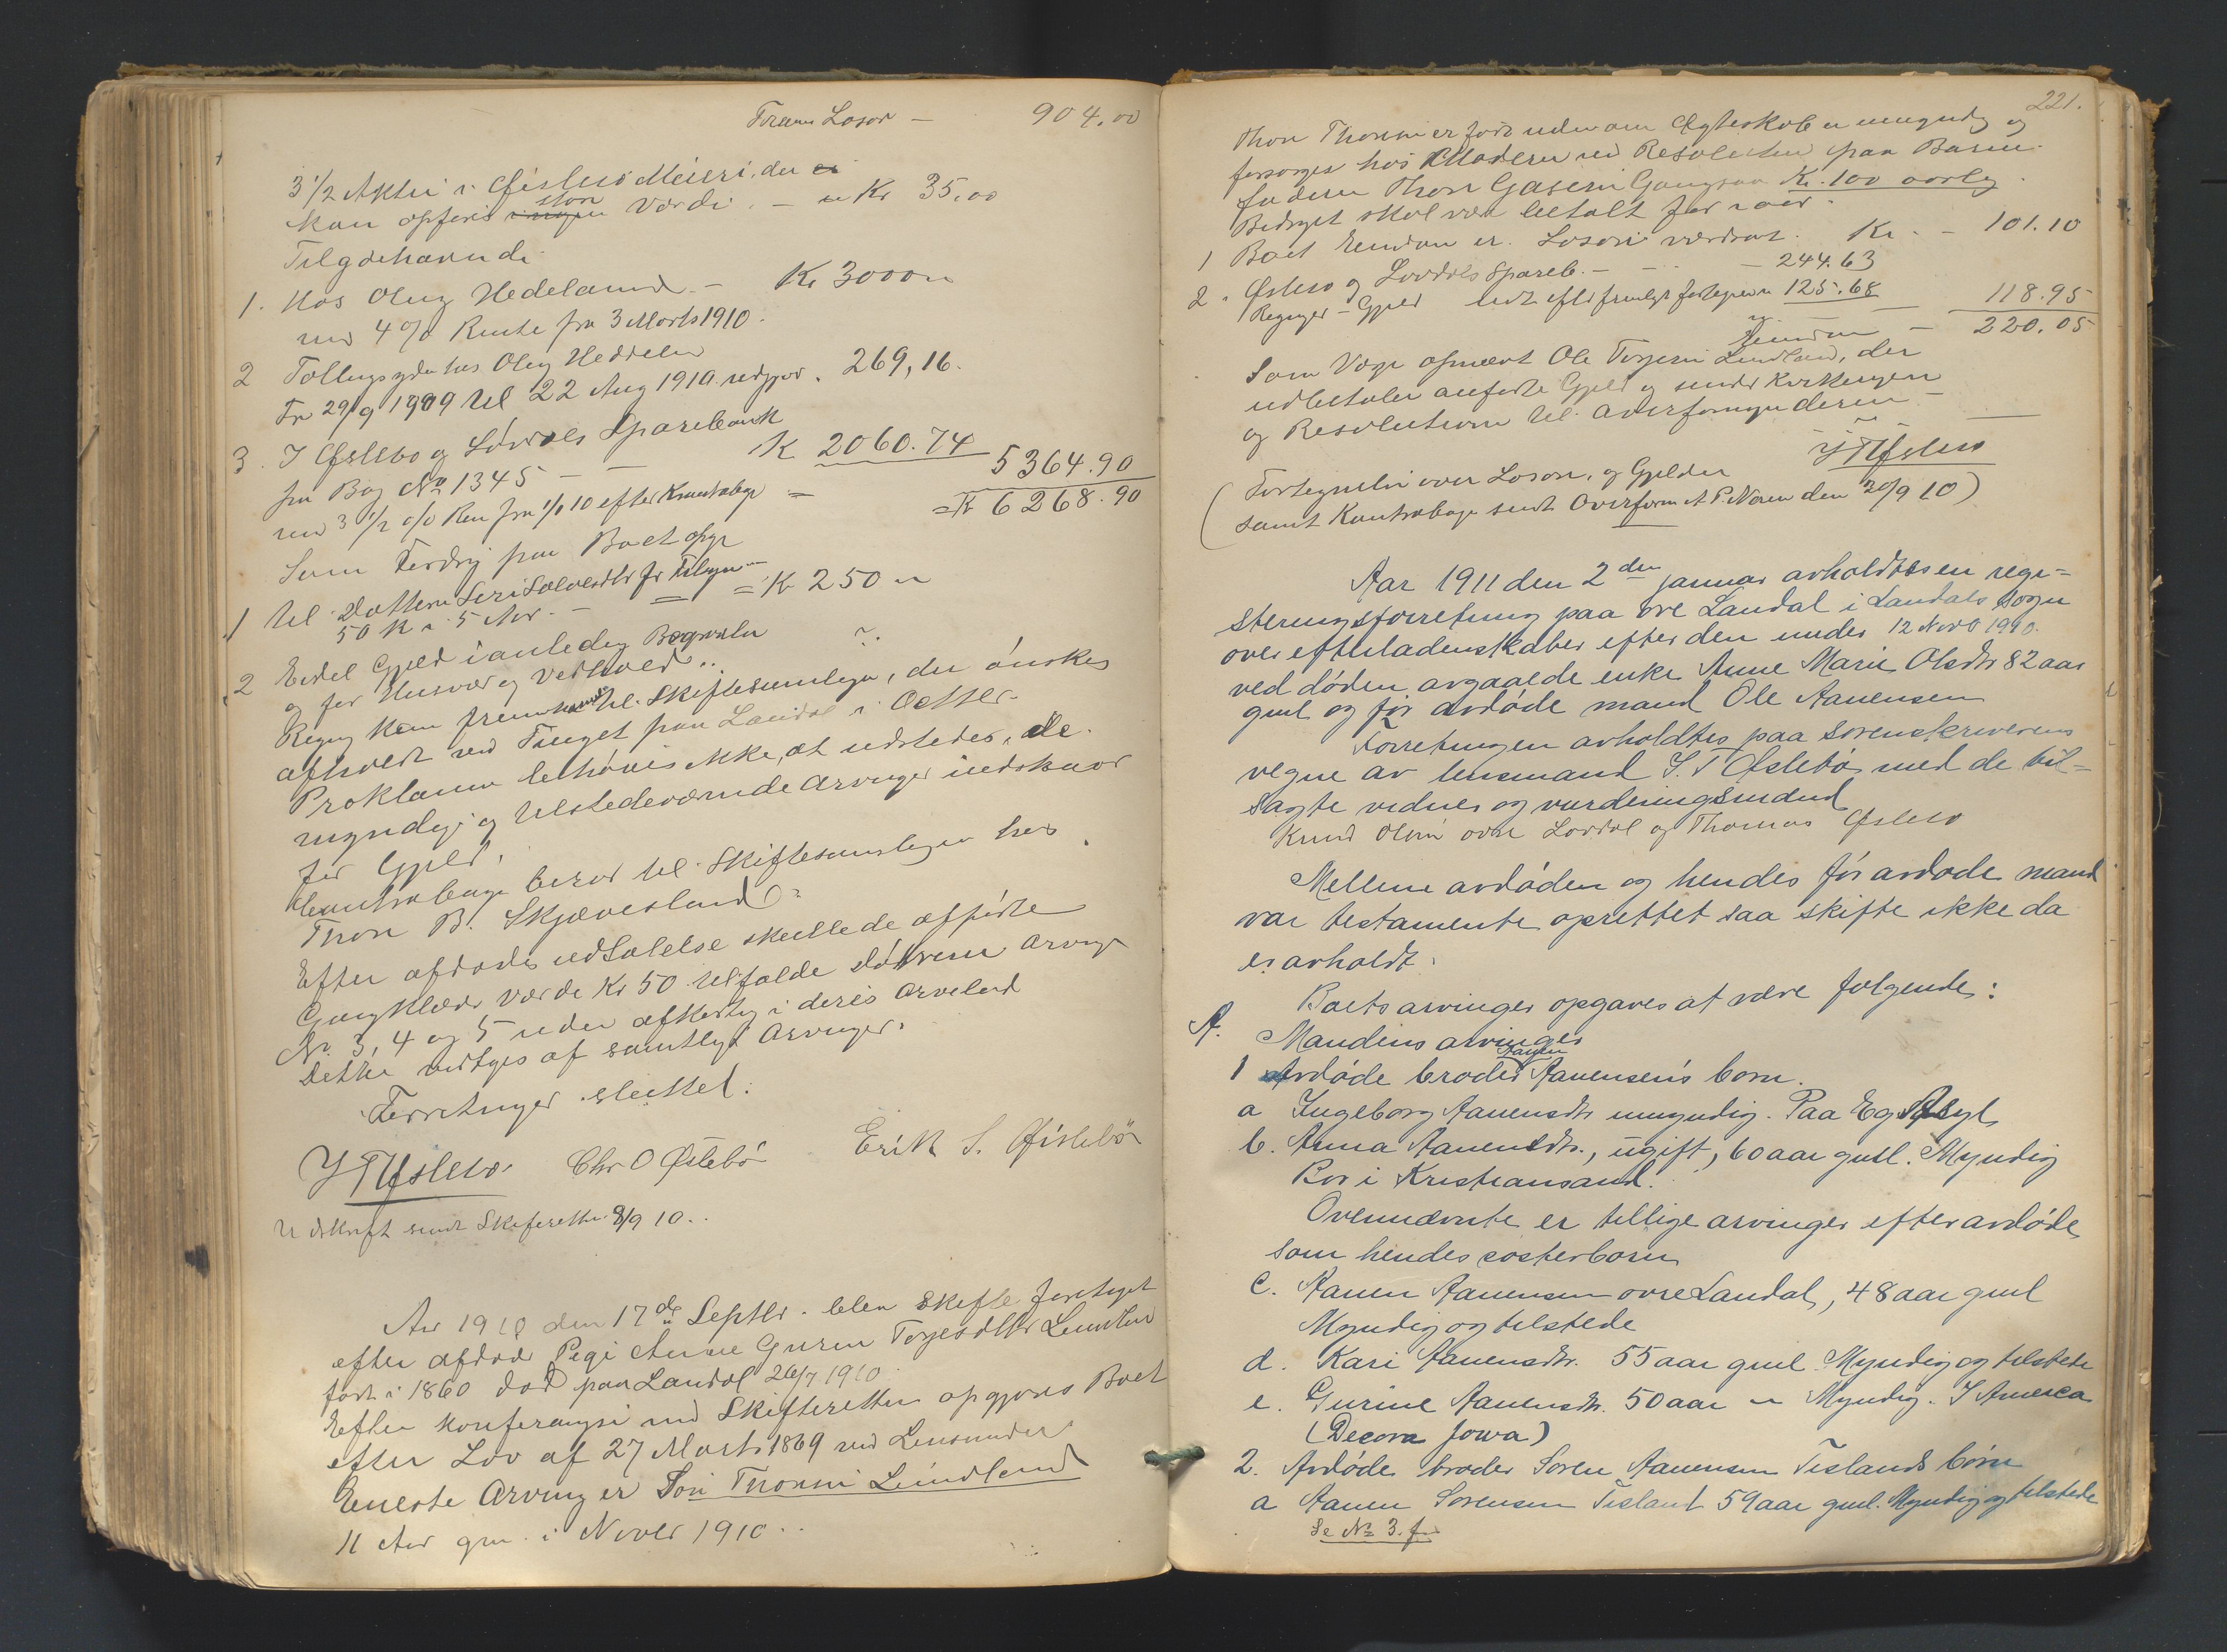 Trans Losor — 904.00
3 1/2 Aktie i Øislebø Meieri, der ei
kan opføres ingen stor Værdi. — " Kr 35.00
Tilgodehavende
1. Hos Oluf Hedeland — Kr 3000 "
med 4 % Rente fra 3 Marts 1910.
2 hos Oluf
Fr 29/9 1909 til 22 Aug 1910 . 269,16.
3. I Øslebø og Løvdals Sparebank
fra Bog No 1345 — — K 2060.74 5364.90
med 3 1/2 o/o Ren fra 1/1 10 efter Kontrabog = = Kr 6268.90
Som paa Boet opgr
1 til Datteren Siri for
50 K i 5 Aar. — = = Kr 250 "
2 Endel Gjeld i anledng Begravelse
og for Husvær og Vedhold..
Regng kan til Skiftesamlingen, der ønskes
afholdt ved Tinget paa Laudal i Octbr.
Proklama behøves ikke at udstedes, de
myndige og tilstedeværende Arvinger indskaar
for Gjeld.
Contrabogen beror til Skiftesamlingen hos
Thore B. Skjævesland
Efter afdødes udtalelse skullede afførte
Gangklæder Værde Kr 50 tilfalde døtrene Arving
No. 3, 4 og 5 uden afkortg i deres Arvelod
Dette vedtges af samtlige Arvinger.
Forretninger sluttet.
S T Øslebø Chr O Øslebø Erik S. Øislebø
Udskrift sendt Skifteretten 8/9 10..
Aar 1910 den 17de Septbr. blev Skifte foretaget
efter afdøde Pige Anne Gurine
født i 1860 død paa Laudal 26/7 1910
Efter konferanse med Skifteretten opgjøres Boet
efter Lov af 27 Marts 1869 ved Lensmanden
Eneste Arving er Søn Lindland
11 Aar gm. i Novbr 1910..
221.
Thore er født udenom Ægteskab er umyndig og
forsørges hos Moderen ved Resolution paa Barne-
faderen Thore Kr. 100 aarlig.
Bidraget skal være betalt for i aar.
1 Boet Eiendom er Løsøre værdsat. Kr. — 101.10
2. Øslebø og Løvdals Spareb. — — 244.63
Regnger — Gjeld 125.68 118.95
220.05
Som Værge opnævnt Ole Lindland, der
udbetaler anførte Gjeld og sender
og Resolution til Overformynderen —
S T Øslebø
(Fortegnelse over Løsøre, og Gjelden
samt Kontrabogen sendt Overform A. P. Noren den 20/9 10)
Aar 1911 den 2den januar avholdtes en regi=
streringsforretning paa øvre Laudal i Laudals sogn
over efterladenskaber efter den under 12 Novb 1910.
ved døden avgaaede enke Anne Marie Olsdtr 82 aar
gml og før avdøde mand Ole Aanensen
Forretningen avholdtes paa sorenskriverens
vegne av lensmand S. T Øslebø, med de til=
sagte vidner og vurderingsmænd
Knud Olsen øvre Løvdal og Thomas Øslebø
Mellem avdøden og hendes før avdøde mand
var testamente oprettet saa skifte ikke da
er avholdt.
Boets arvinger opgaves at være følgende:
A. Mandens arvinger
1 Avdøde broder Aanen Aanensen's børn.
a Ingeborg Aanensdtr umyndig. Paa Eg Asyl
b. Anna Aanensdtr., ugift, 60 aar gml. Myndig
Bor i Kristiansand.
Ovennævnte er tillige arvinger efter avdøde
som hendes søsterbørn
c. Aanen Aanensen øvre Laudal, 48 aar gml
Myndig og tilstede
d. Kari Aanensdtr. 55 aar gml Myndig og tilstede
e. Gurine Aanensdtr. 50 aar " Myndig. I Amerca
(Decora Jowa)
2. Avdøde broder Søren Aanensen Tislands børn
a Aanen Sørensen Tisland 59 aar gml. Myndig og tilstede
Se No 3. f